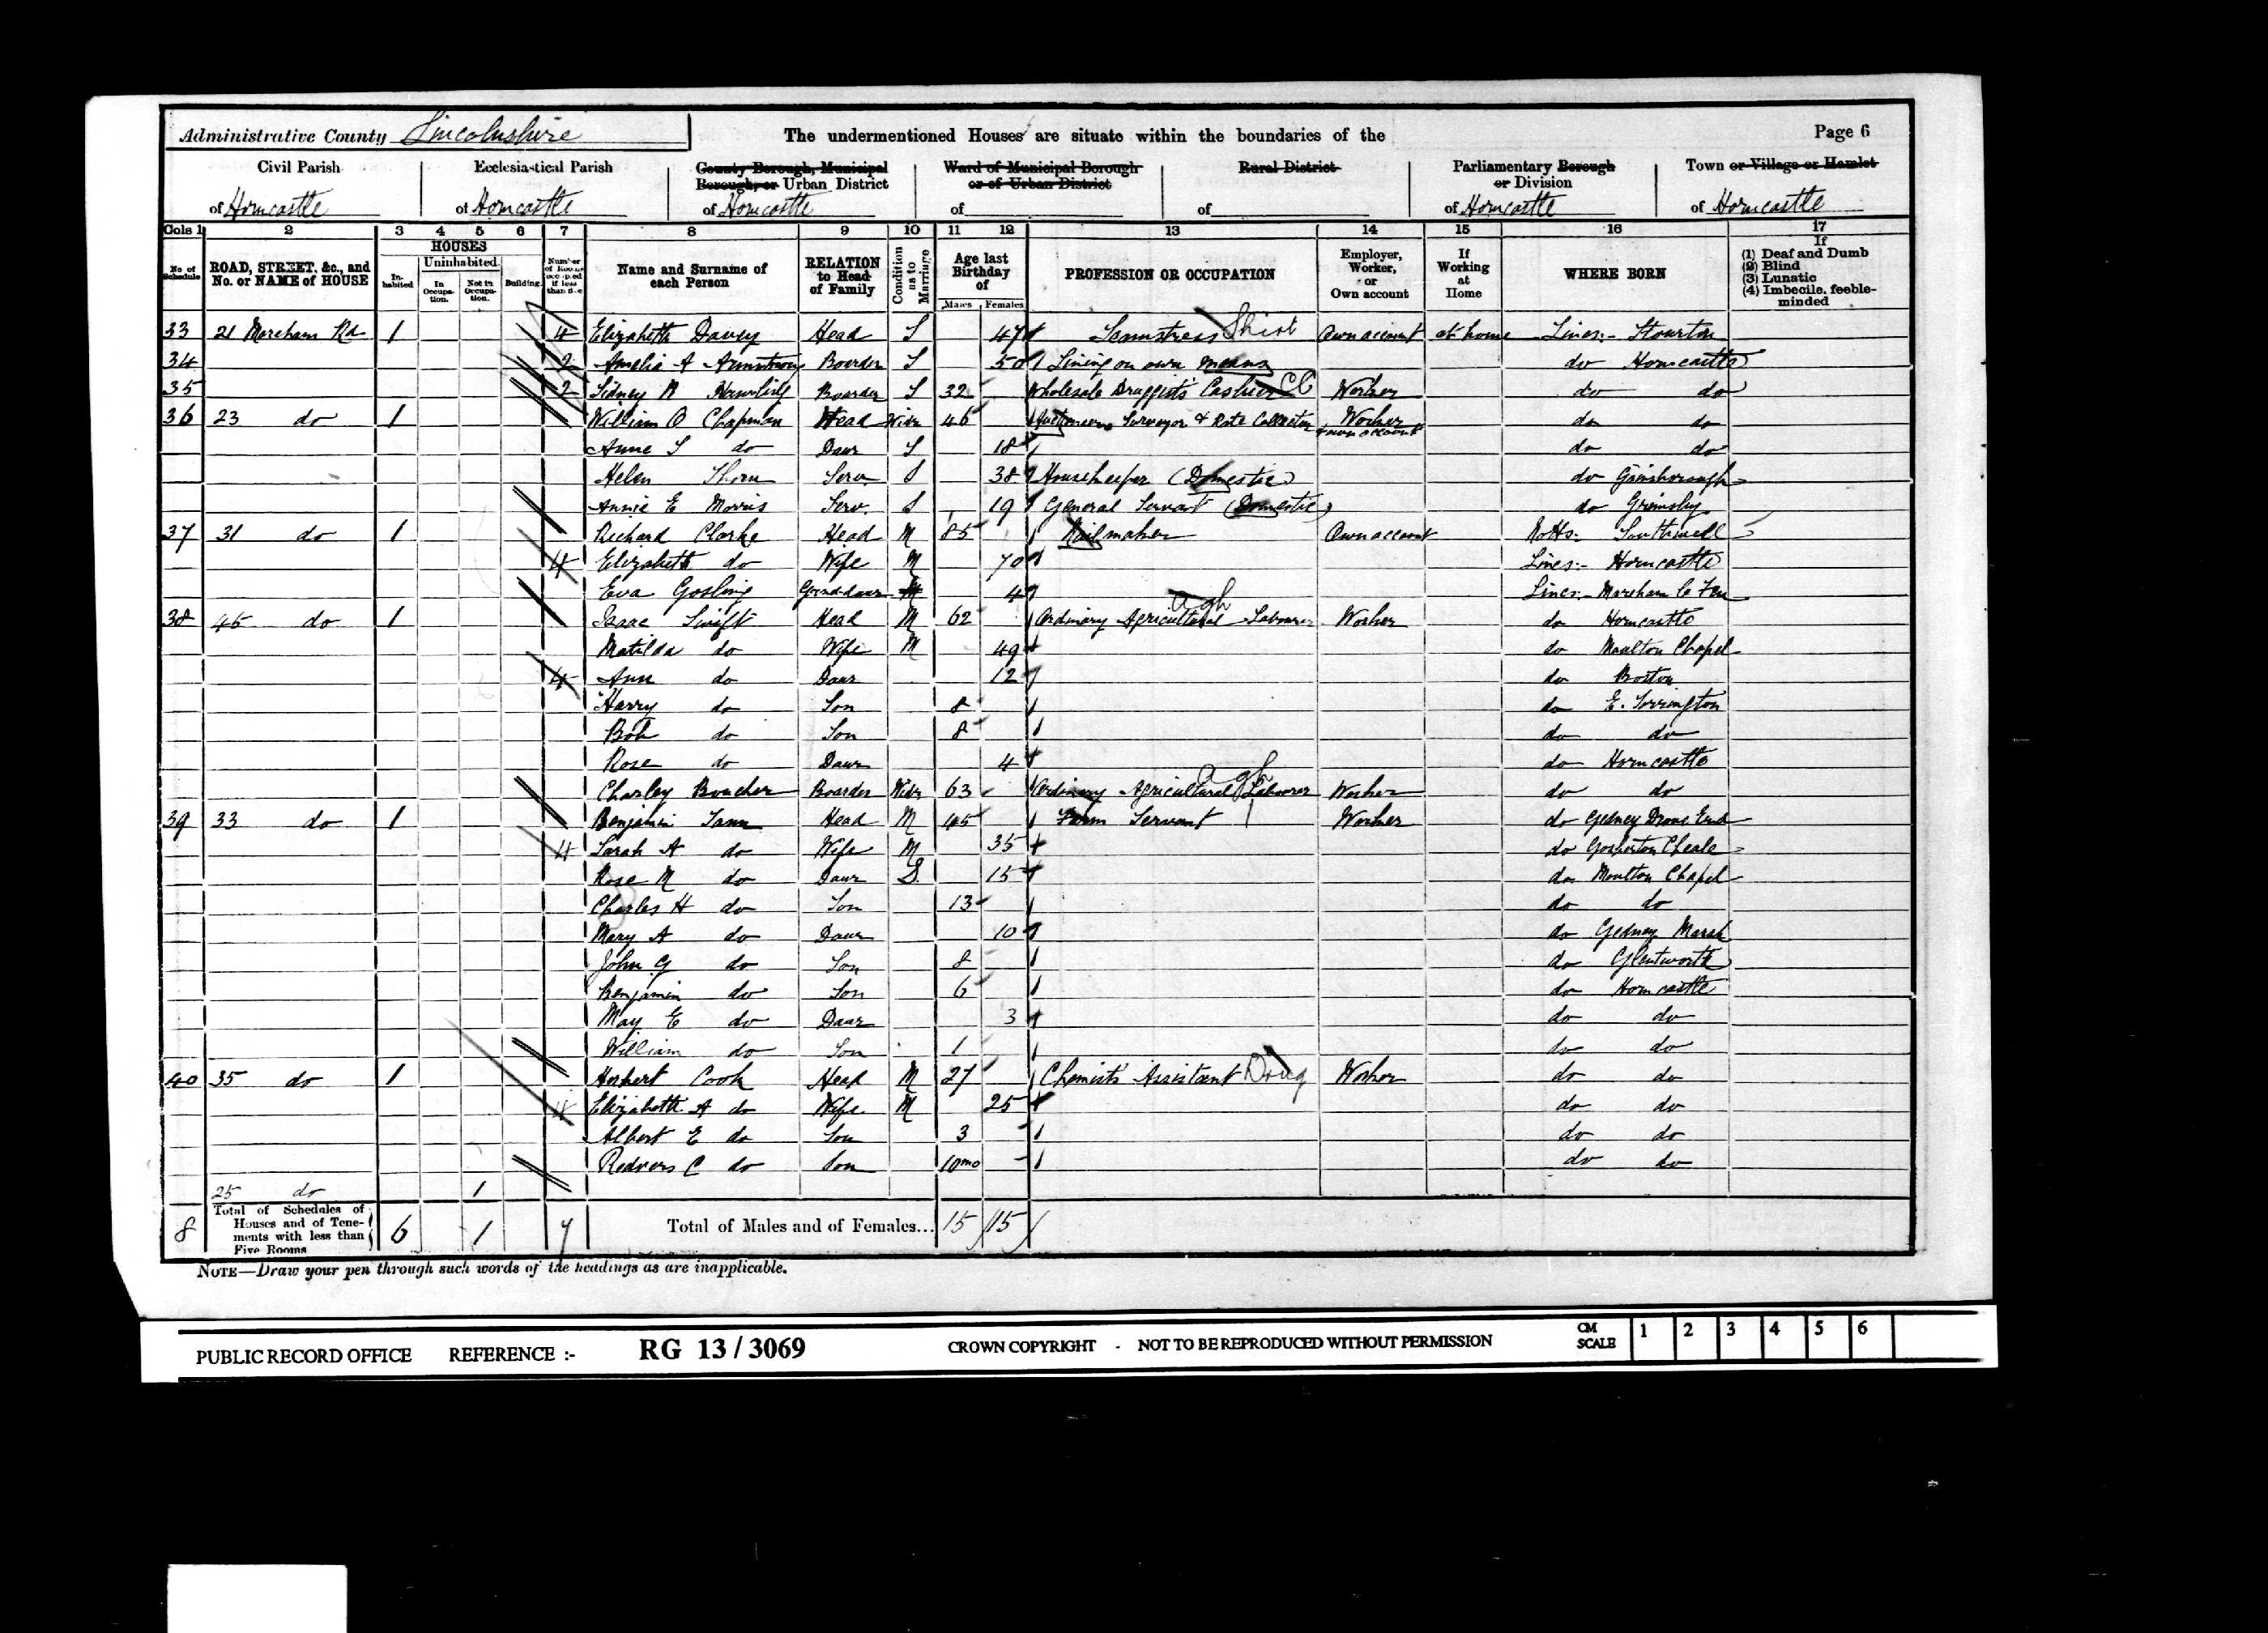 Administrative County Lincolnshire The undermentioned Houses are situate within the boundaries of the Page 6
Civil Parish Ecclesiastical Parish County Borough, Municipal Borough, or Urban District Ward of Municipal Borough or of Urban District Rural District Parliamentary Borough or Division Town or Village or Hamlet
of Horncastle of Horncastle of Horncastle of of of Horncastle of Horncastle
Cols 1 2 3 4 5 6 7 8 9 10 11 12 13 14 15 16 17
No of Schedule ROAD, STREET, &c., and No. or NAME of HOUSE HOUSES Inhabited Uninhabited In Occupation. Not in Occupation. Building. Number of Rooms occupied if less than five Name and Surname of each Person RELATION to Head of Family Condition as to Marriage Age last Birthday of Males Females PROFESSION OR OCCUPATION Employer, Worker, or Own account If Working at Home WHERE BORN If (1) Deaf and Dumb (2) Blind (3) Lunatic (4) Imbecile, feeble-minded
33 21 Mareham Rd 1 4 Elizabeth Davey Head S 47 Seamstress Shirt Own account at home Lincs:- Stourton
34 2 Amelia A Armstrong Boarder S 50 Living on own means do Horncastle
35 2 Sidney R Boarder S 32 Wholesale Druggists Cashier CC Worker do do
36 23 do 1 William O Chapman Head Widr 46 Auctioneers Surveyor & Rate Collector Worker & own account do do
Anne S do Daur S 18 do do
Helen Thorn Serv. S 38 Housekeeper (Domestic) do Gainsborough
Annie E Morris Serv. S 19 General Servant (Domestic) do Grimsby
37 31 do 1 Richard Clarke Head M 85 Nailmaker Own account Notts:- Southwell
4 Elizabeth do Wife M 70 Lincs:- Horncastle
Eva Gosling Grand-daur 4 Lincs:- Mareham le Fen
38 45 do 1 Isaac Swift Head M 62 Ordinary Agricultural Labourer agl Worker do Horncastle
Matilda do Wife M 49 do Moulton Chapel
4 Ann do Daur 12 do Boston
Harry do Son 8 do E. Torrington
Bob do Son 8 do do
Rose do Daur 4 do Horncastle
Charley Boucher Boarder Widr 63 Ordinary Agricultural Labourer agl Worker do do
39 33 do 1 Benjamin Tann Head M 45 Farm Servant Worker do Gedney Drove End
4 Sarah A do Wife M 35 do Gosberton Cheale
Rose M do Daur S. 15 do Moulton Chapel
Charles H do Son 13 do do
Mary A do Daur 10 do Gedney Marsh
John G do Son 8 do Glentworth
Benjamin do Son 6 do Horncastle
May E do Daur 3 do do
William do Son 1 do do
40 35 do 1 Herbert Cook Head M 27 Chemist's Assistant Drug Worker do do
4 Elizabeth A do Wife M 25 do do
Albert E do Son 3 do do
Redvers C do Son 10mo do do
25 do 1
8 Total of Schedules of Houses and of Tenements with less than Five Rooms 6 1 7 Total of Males and of Females... 15 15
NOTE—Draw your pen through such words of the headings as are inapplicable.
PUBLIC RECORD OFFICE REFERENCE :- RG 13 / 3069 CROWN COPYRIGHT - NOT TO BE REPRODUCED WITHOUT PERMISSION CM SCALE 1 2 3 4 5 6